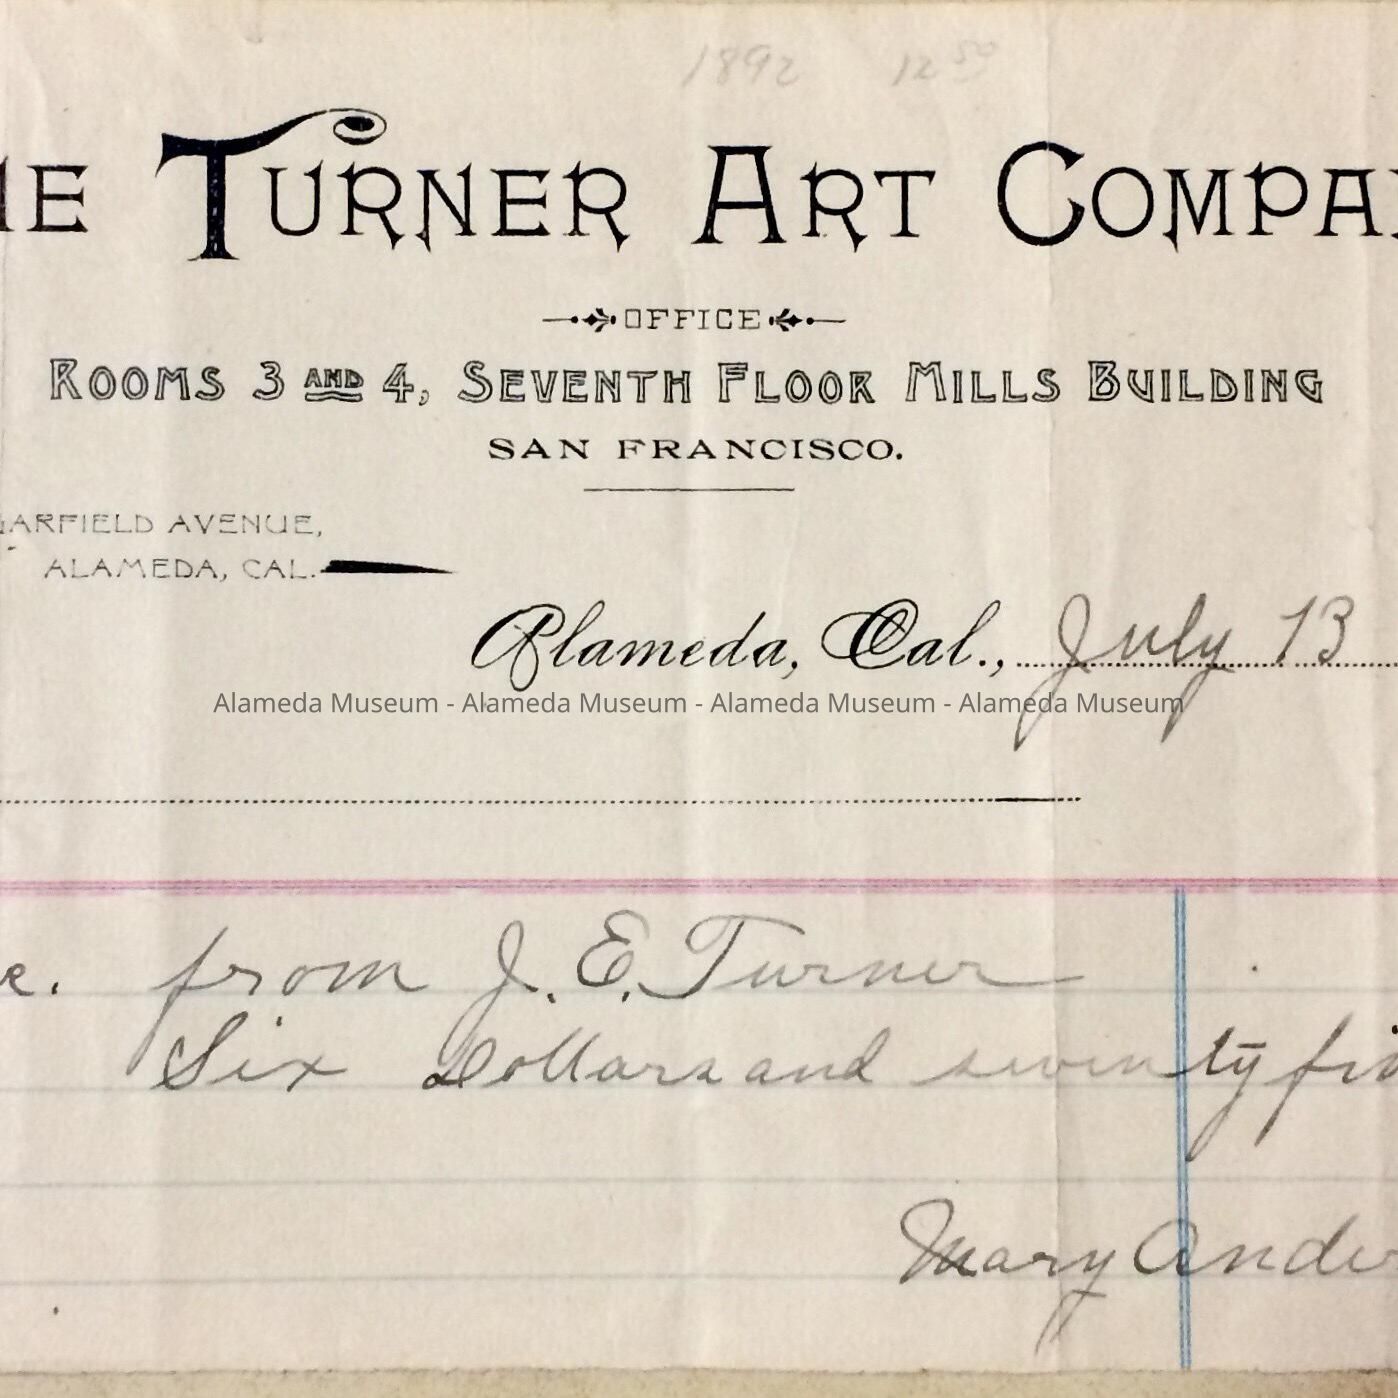 1892 12 50
HE TURNER ART COMPA
OFFICE
ROOMS 3 AND 4, SEVENTH FLOOR MILLS BUILDING
SAN FRANCISCO.
GARFIELD AVENUE,
ALAMEDA, CAL.
Alameda, Cal., July 13
Alameda Museum - Alameda Museum - Alameda Museum - Alameda Museum
from J. E. Turner
Six Dollars and seventy fiv
Mary Ander